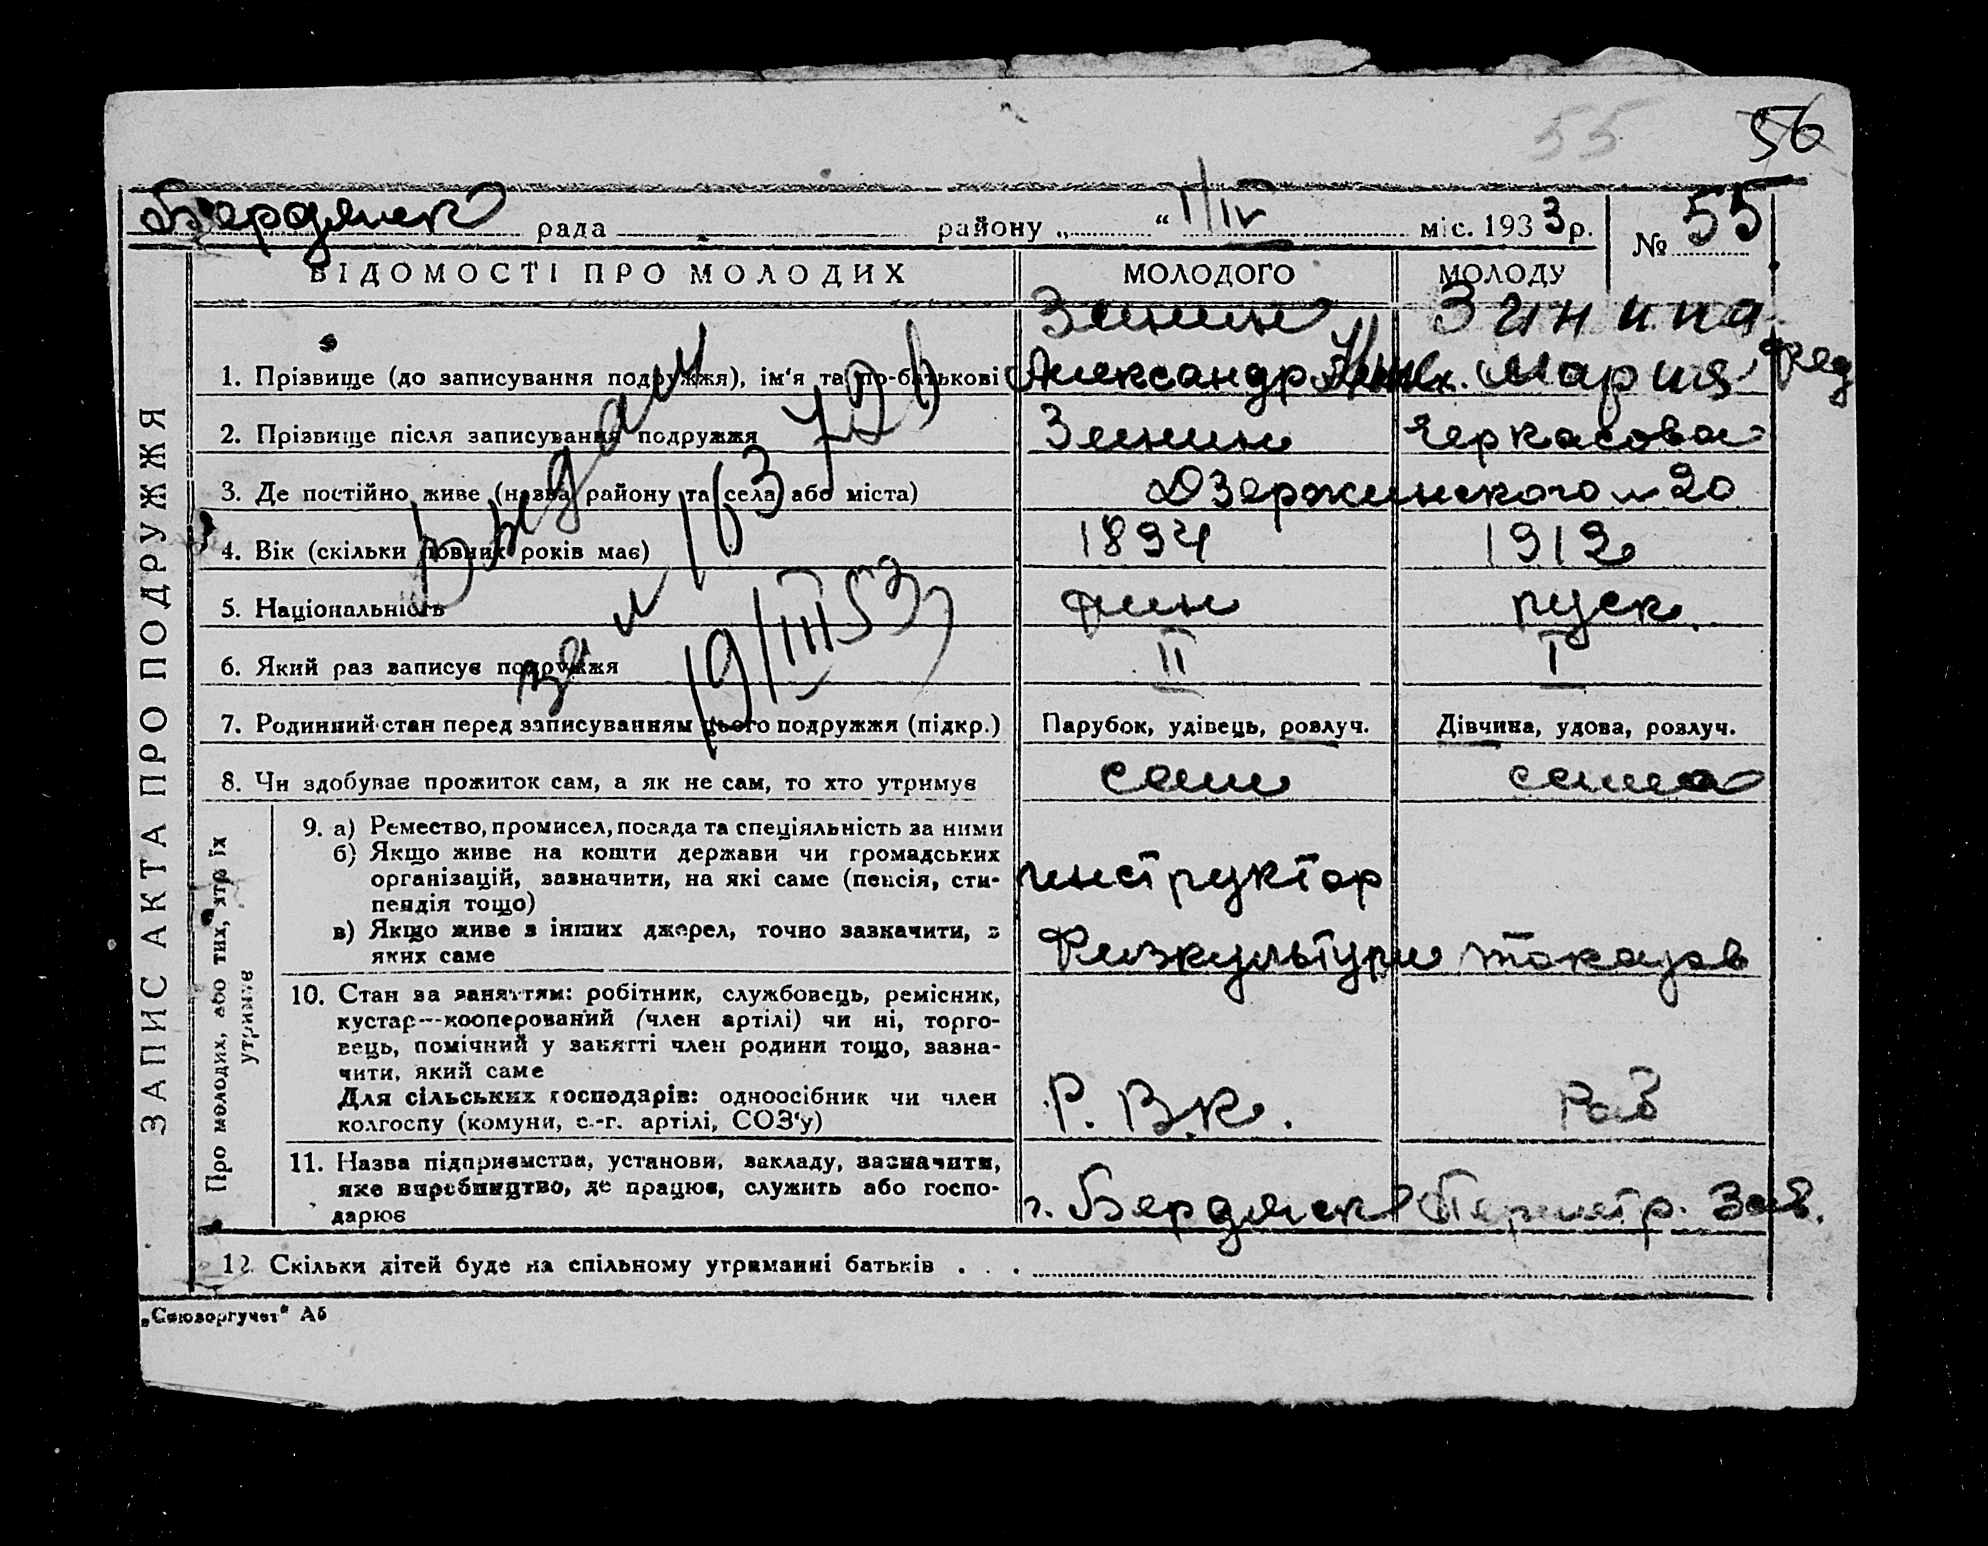 55
56
Бердянск рада района „ “ 1/IV міс. 1933 р. № 55
ЗАПИС АКТА ПРО ПОДРУЖЖЯ
ВІДОМОСТІ ПРО МОЛОДИХ МОЛОДОГО МОЛОДУ
Зинин Зинина
1. Прізвище (до записування подружжя), ім'я та по-батькові Александр Мария Фед
2. Прізвище після записування подружжя Зинин Черкасова
3. Де постійно живе (назва району та села або міста) Дзержинского 20
4. Вік (скільки повних років має) 1894 1912
5. Національність фин руск.
6. Який раз записує подружжя II I
7. Родинний стан перед записуванням цього подружжя (підкр.) Парубок, удівець, розлуч. Дівчина, удова, розлуч.
8. Чи здобуває прожиток сам, а як не сам, то хто утримує сам сама
Про молодих, або тих, хто їх утримує
9. а) Ремество, промисел, посада та спеціяльність за ними
б) Якщо живе на кошти держави чи громадських
організацій, зазначити, на які саме (пенсія, сти-
пендія тощо)
инструктор
в) Якщо живе з інших джерел, точно зазначити, з
яких саме
Физкультури токарь
10. Стан за заняттям: робітник, службовець, ремісник,
кустар—кооперований (член артілі) чи ні, торго-
вець, помічний у занятті член родини тощо, зазна-
чити, який саме
Для сільських господарів: одноосібник чи член
колгоспу (комуни, с.-г. артілі, СОЗ'у) Р. В. К. Раб
11. Назва підприємства, установи, закладу, зазначити,
яке виробництво, де працює, служить або госпо-
дарює
г. Бердянск Зав.
12. Скільки дітей буде на спільному утриманні батьків . . .
Выдан
19/III 53
„Союзоргучет“ А5